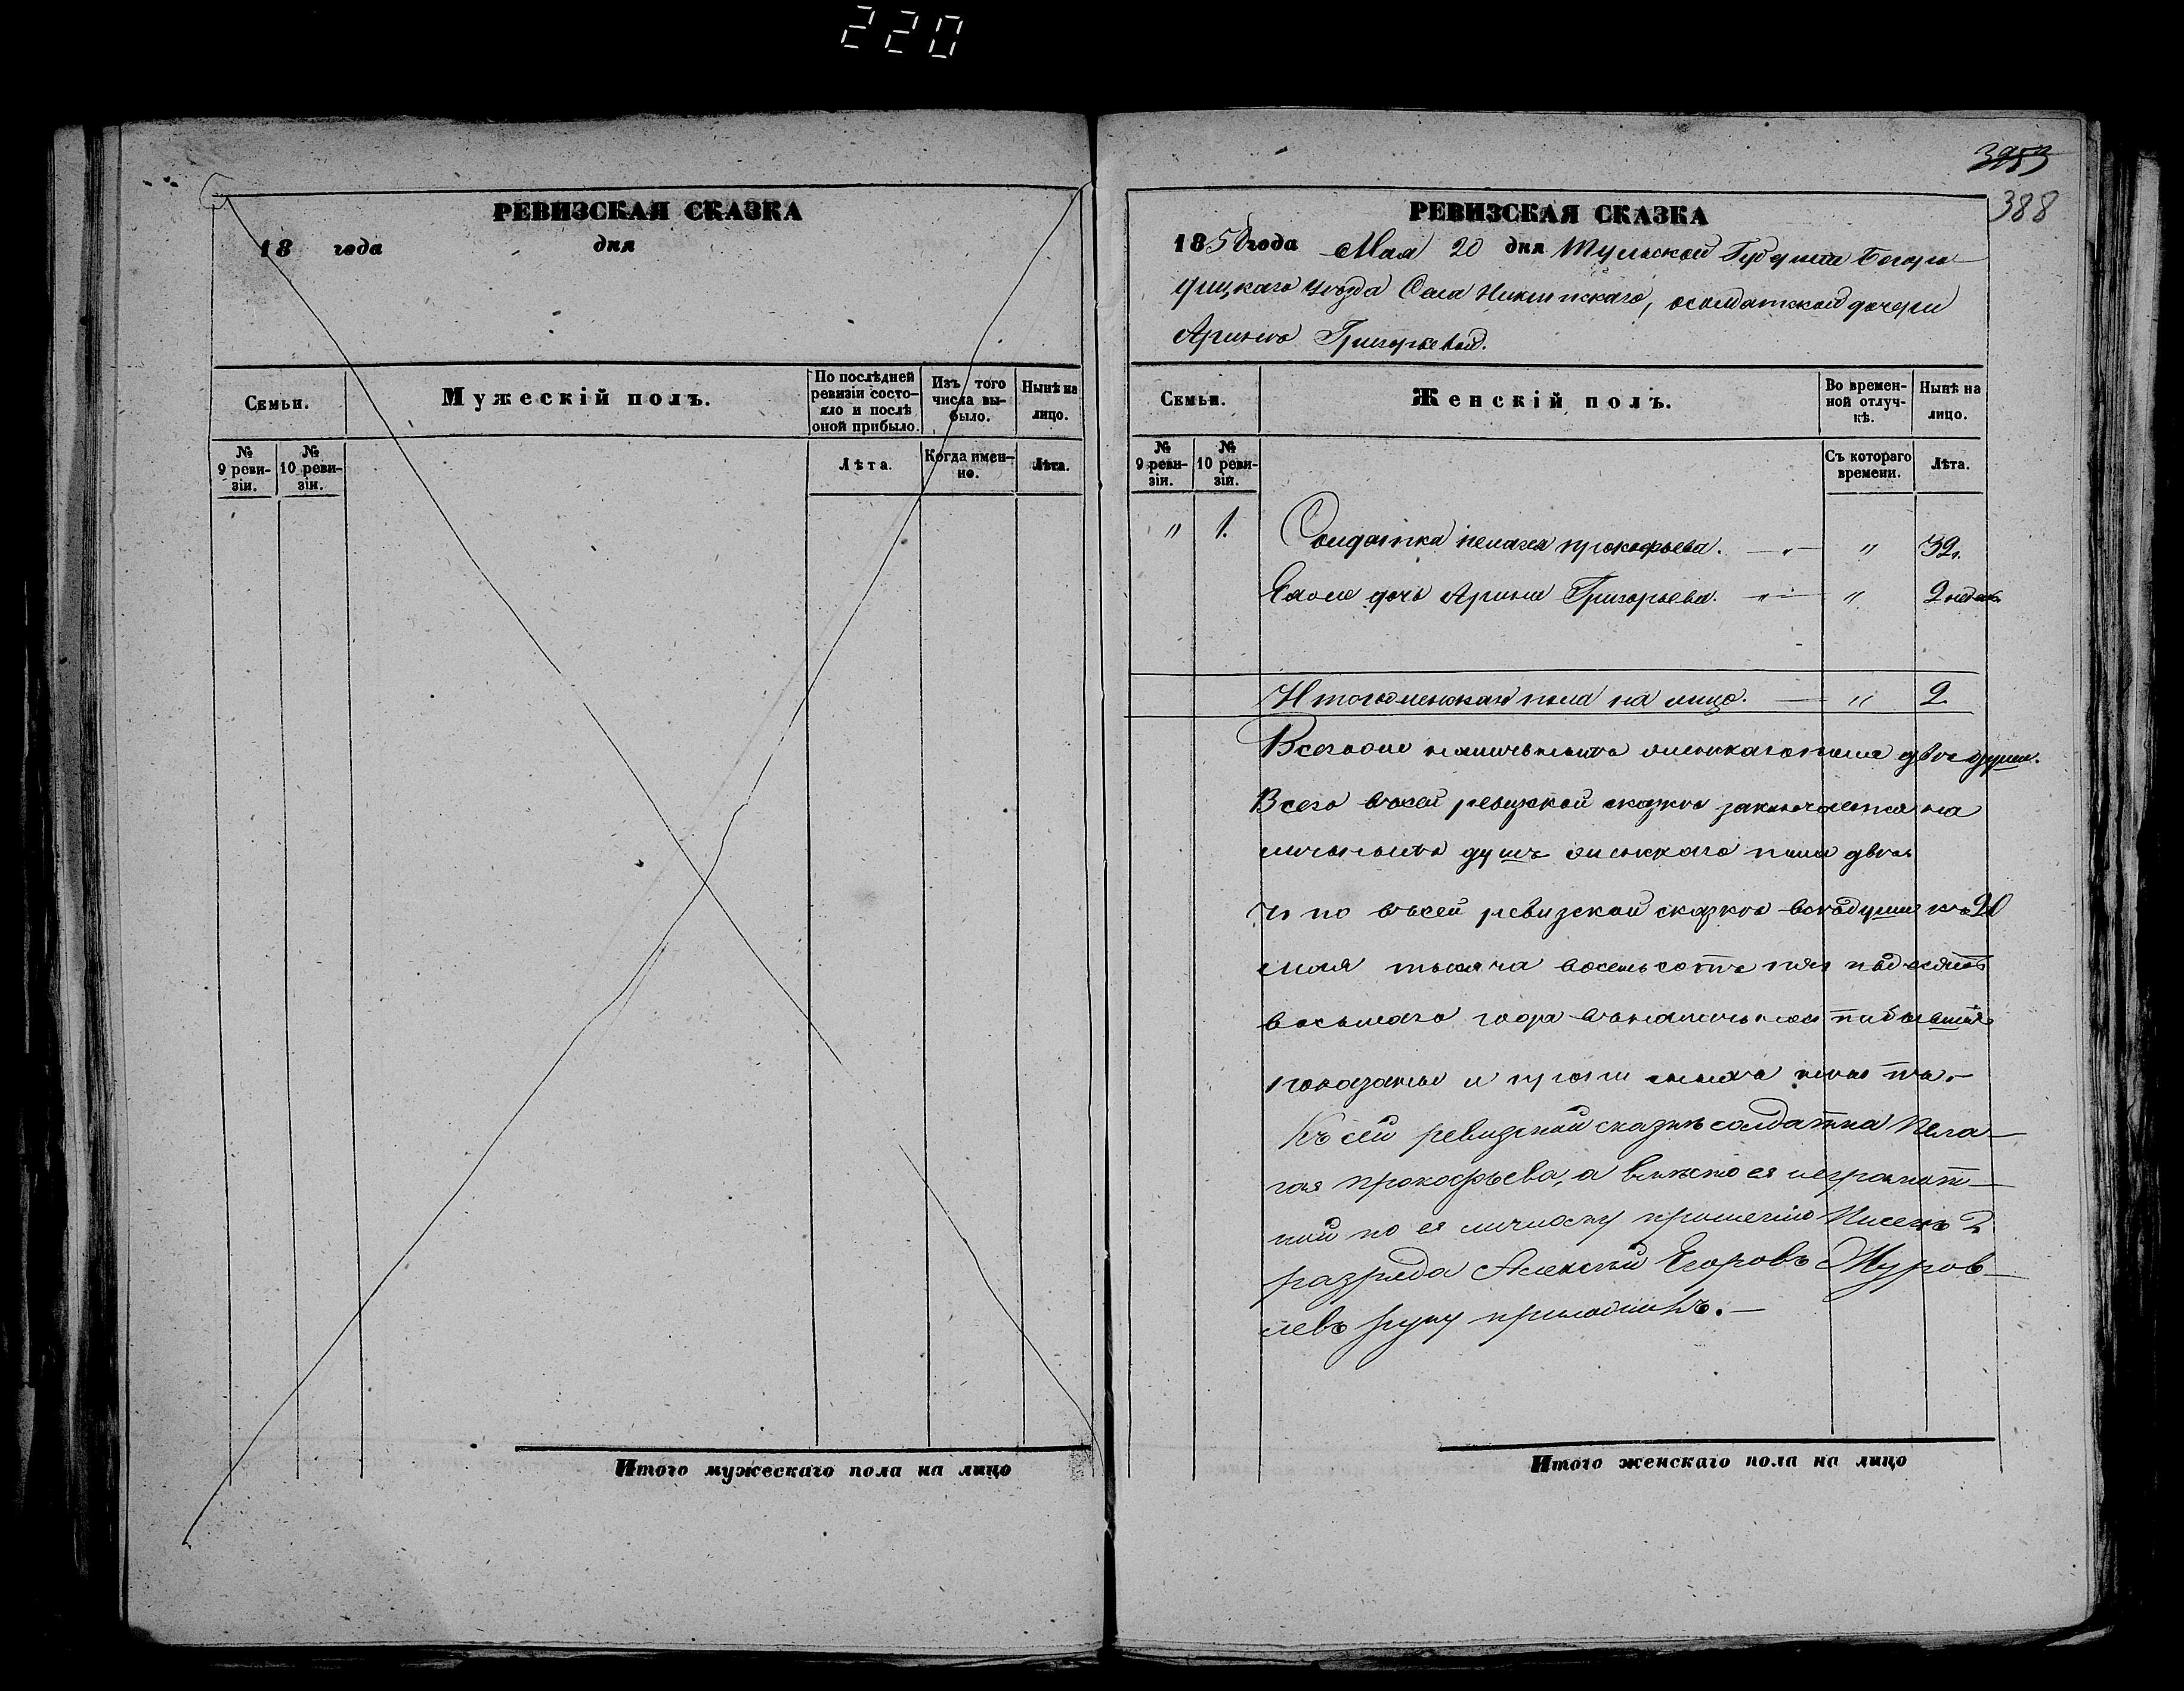 220
РЕВИЗСКАЯ СКАЗКА
18 года дня
Семьи.
Мужескій полъ.
По послѣдней ревизіи состояло и послѣ оной прибыло.
Изъ того числа выбыло.
Нынѣ на лицо.
№ 9 ревизіи.
№ 10 ревизіи.
Лѣта.
Когда именно.
Лѣта.
Итого мужескаго пола на лицо
3953
388
РЕВИЗСКАЯ СКАЗКА
1858 года Мая 20 дня Тульской Губернии Богоро
дицкаго уѣзда Села Никитскаго, солдатской дочери
Арины Григорьевой.
Семьи.
Женскій полъ.
Во временной отлучкѣ.
Нынѣ на лицо.
№ 9 ревизіи.
№ 10 ревизіи.
Съ котораго времени.
Лѣта.
" 1. Солдатка пелагея прокофьева. " 32.
Ея дочь Арина Григорьева. " 2 недѣл.
Итого женскаго пола на лицо. " 2
Всего наличныхъ женскаго пола двѣ души.
Всего въ сей ревизской сказкѣ заключается на
личныхъ душъ женскаго пола двѣ
что по въ сей ревизской сказкѣ все души къ 20
мая тысяча восемьсотъ пятьдесятъ
восьмаго года въ наличности бывшія
показаны и прописныхъ нѣтъ.
Къ сей ревизской сказкѣ солдатка Пела-
гея прокофьева, а вмѣсто ея неграмот-
ной по ея личному прошенію Писецъ 2
разряда Алексей Егоровъ Журов-
левъ руку приложилъ.
Итого женскаго пола на лицо